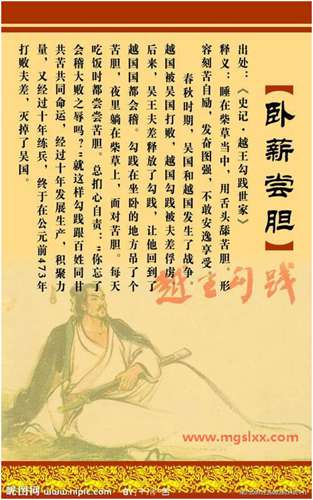 【卧薪尝胆】
出处：《史记·越王勾践世家》
释义：睡在柴草当中，用舌头舔苦胆。形
容刻苦自励，发奋图强，不敢安逸享受
春秋时期，吴国和越国发生了战争，
越国被吴国打败，越国勾践被夫差俘虏
后来，吴王夫差释放了勾践，让他回到了
越国国都会稽。勾践在坐卧的地方吊了个
苦胆，夜里躺在柴草上，面对苦胆。每天
吃饭时都尝尝苦胆。总扪心自责：“你忘了
会稽大败之辱吗？”就这样勾践跟百姓同甘
共苦同命运，经过十年发展生产，积聚力
量，又经过十年练兵，终于在公元前473年
打败夫差，灭掉了吴国。
越王勾践
www.mgslxx.com
昵图网
www.nipic.com
BY: